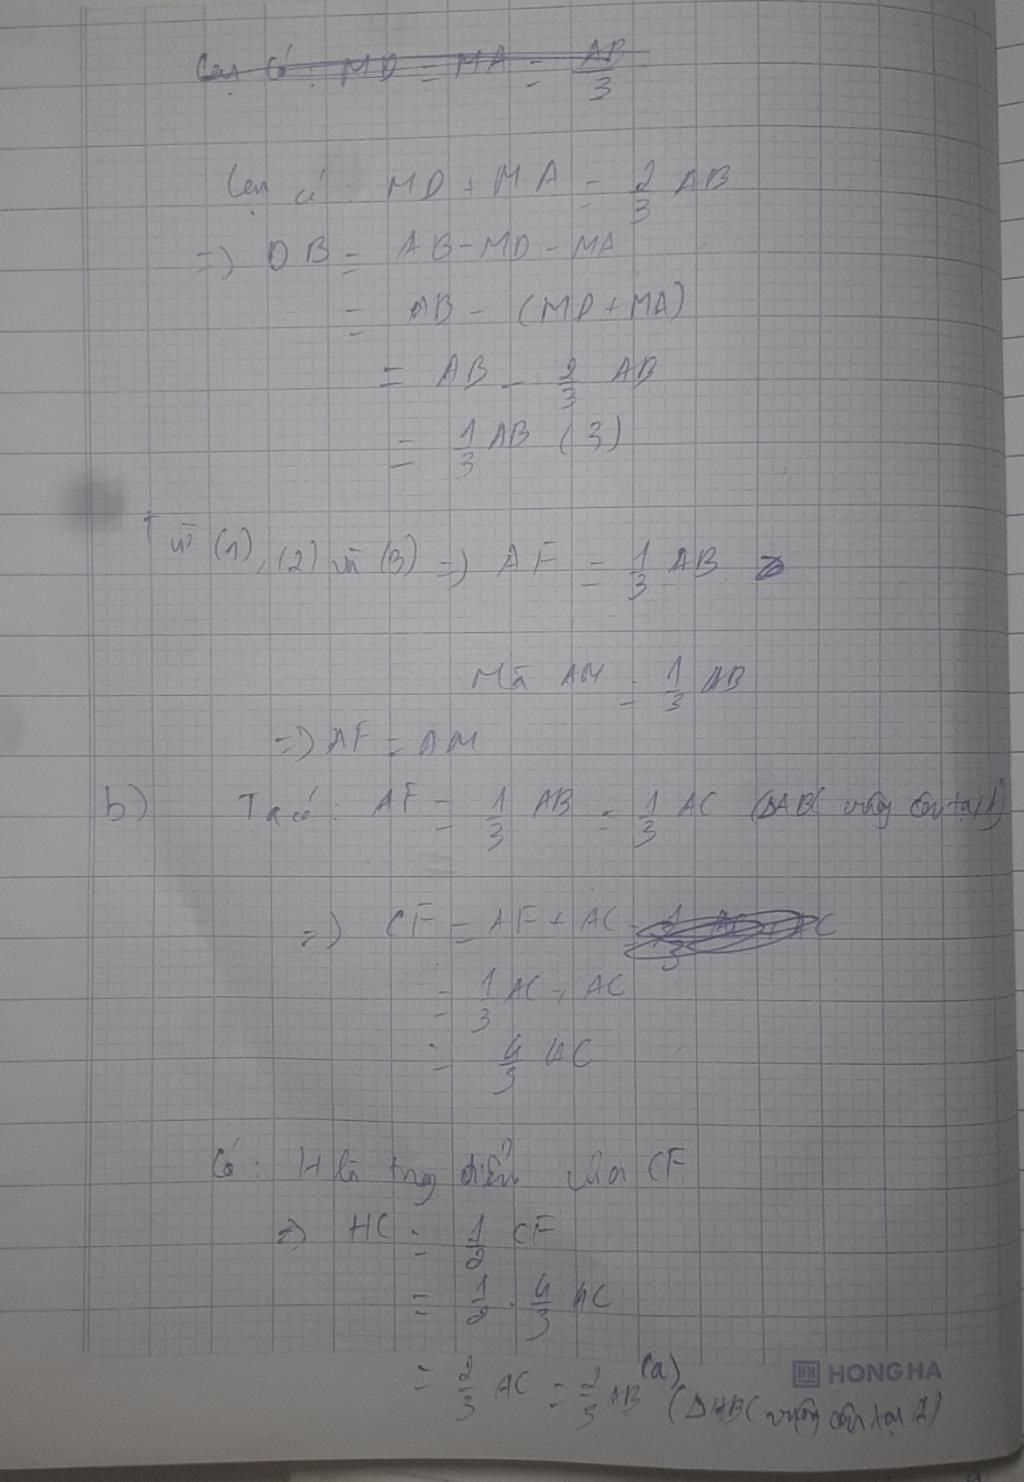 Lại có: MD = MA = AB/3
Lại có: MD + MA = 2/3 AB
=> DB = AB - MD - MA
= AB - (MD + MA)
= AB - 2/3 AB
= 1/3 AB (3)
Từ (1), (2) và (3) => AF = 1/3 AB
Mà AM = 1/3 AB
=> AF = AM
b) Ta có: AF = 1/3 AB = 1/3 AC (ΔABC vuông cân tại A)
=> CF = AF + AC
= 1/3 AC + AC
= 4/3 AC
Có: H là trung điểm của CF
=> HC = 1/2 CF
= 1/2 . 4/3 AC
= 2/3 AC = 2/3 AB (a) (ΔABC vuông cân tại A)
HONG HA